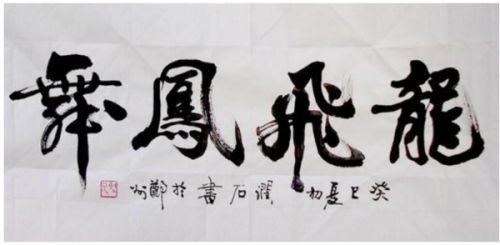 龍飛鳳舞
癸巳夏初 潤石書於鄭州